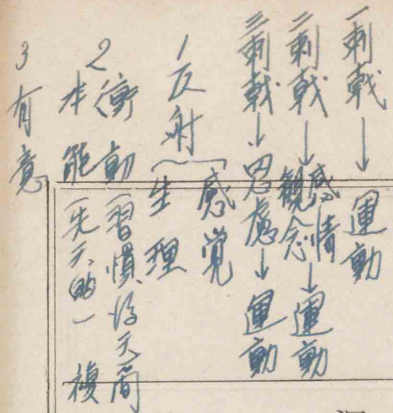 一刺戟→運動
二刺戟→感情観念→運動
三刺戟→思慮→運動
1反射{感覚
生理
2衝動(習慣後天簡
本能(先天的一複
3有意